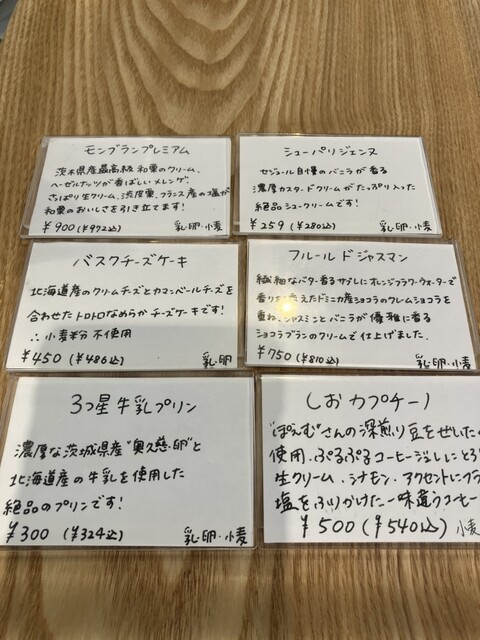 モンブランプレミアム
茨木県産最高級 和栗のクリーム、
ヘーゼルナッツが香ばしいメレンゲ、
さっぱり生クリーム、渋皮栗、フランス産の塩が
和栗のおいしさを引き立てます!
¥900(¥972込) 乳・卵・小麦
シューパリジェンヌ
セジュール自慢のバニラが香る
濃厚カスタードクリームがたっぷり入った
絶品シュークリームです!
¥259(¥280込) 乳・卵・小麦
バスクチーズケーキ
北海道産のクリームチーズとカマンベールチーズを
合わせたトロトロなめらかチーズケーキです!
∴小麦粉不使用
¥450(¥486込) 乳・卵
フルール ド ジャスマン
繊細なバター香るサブレにオレンジフラワーウォーターで
香りを
えたドミニカ産ショコラのクレムショコラを
重ね、ジャスミンとバニラが優雅に香る
ショコラブランのクリームで仕上げました。
¥750(¥810込) 乳・卵・小麦
3つ星 牛乳プリン
濃厚な茨城県産"奥久慈卵"と
北海道産の牛乳を使用した
絶品のプリンです!
¥300(¥324込) 乳・卵・小麦
しお カプチーノ
"ぽえむ"さんの深煎り豆をぜいた
使用、ぷるぷるコーヒージュレにとろ
生クリーム、シナモン、アクセントにフラ
塩をふりかけた一味違うコーヒー
¥500(¥540込) 小麦